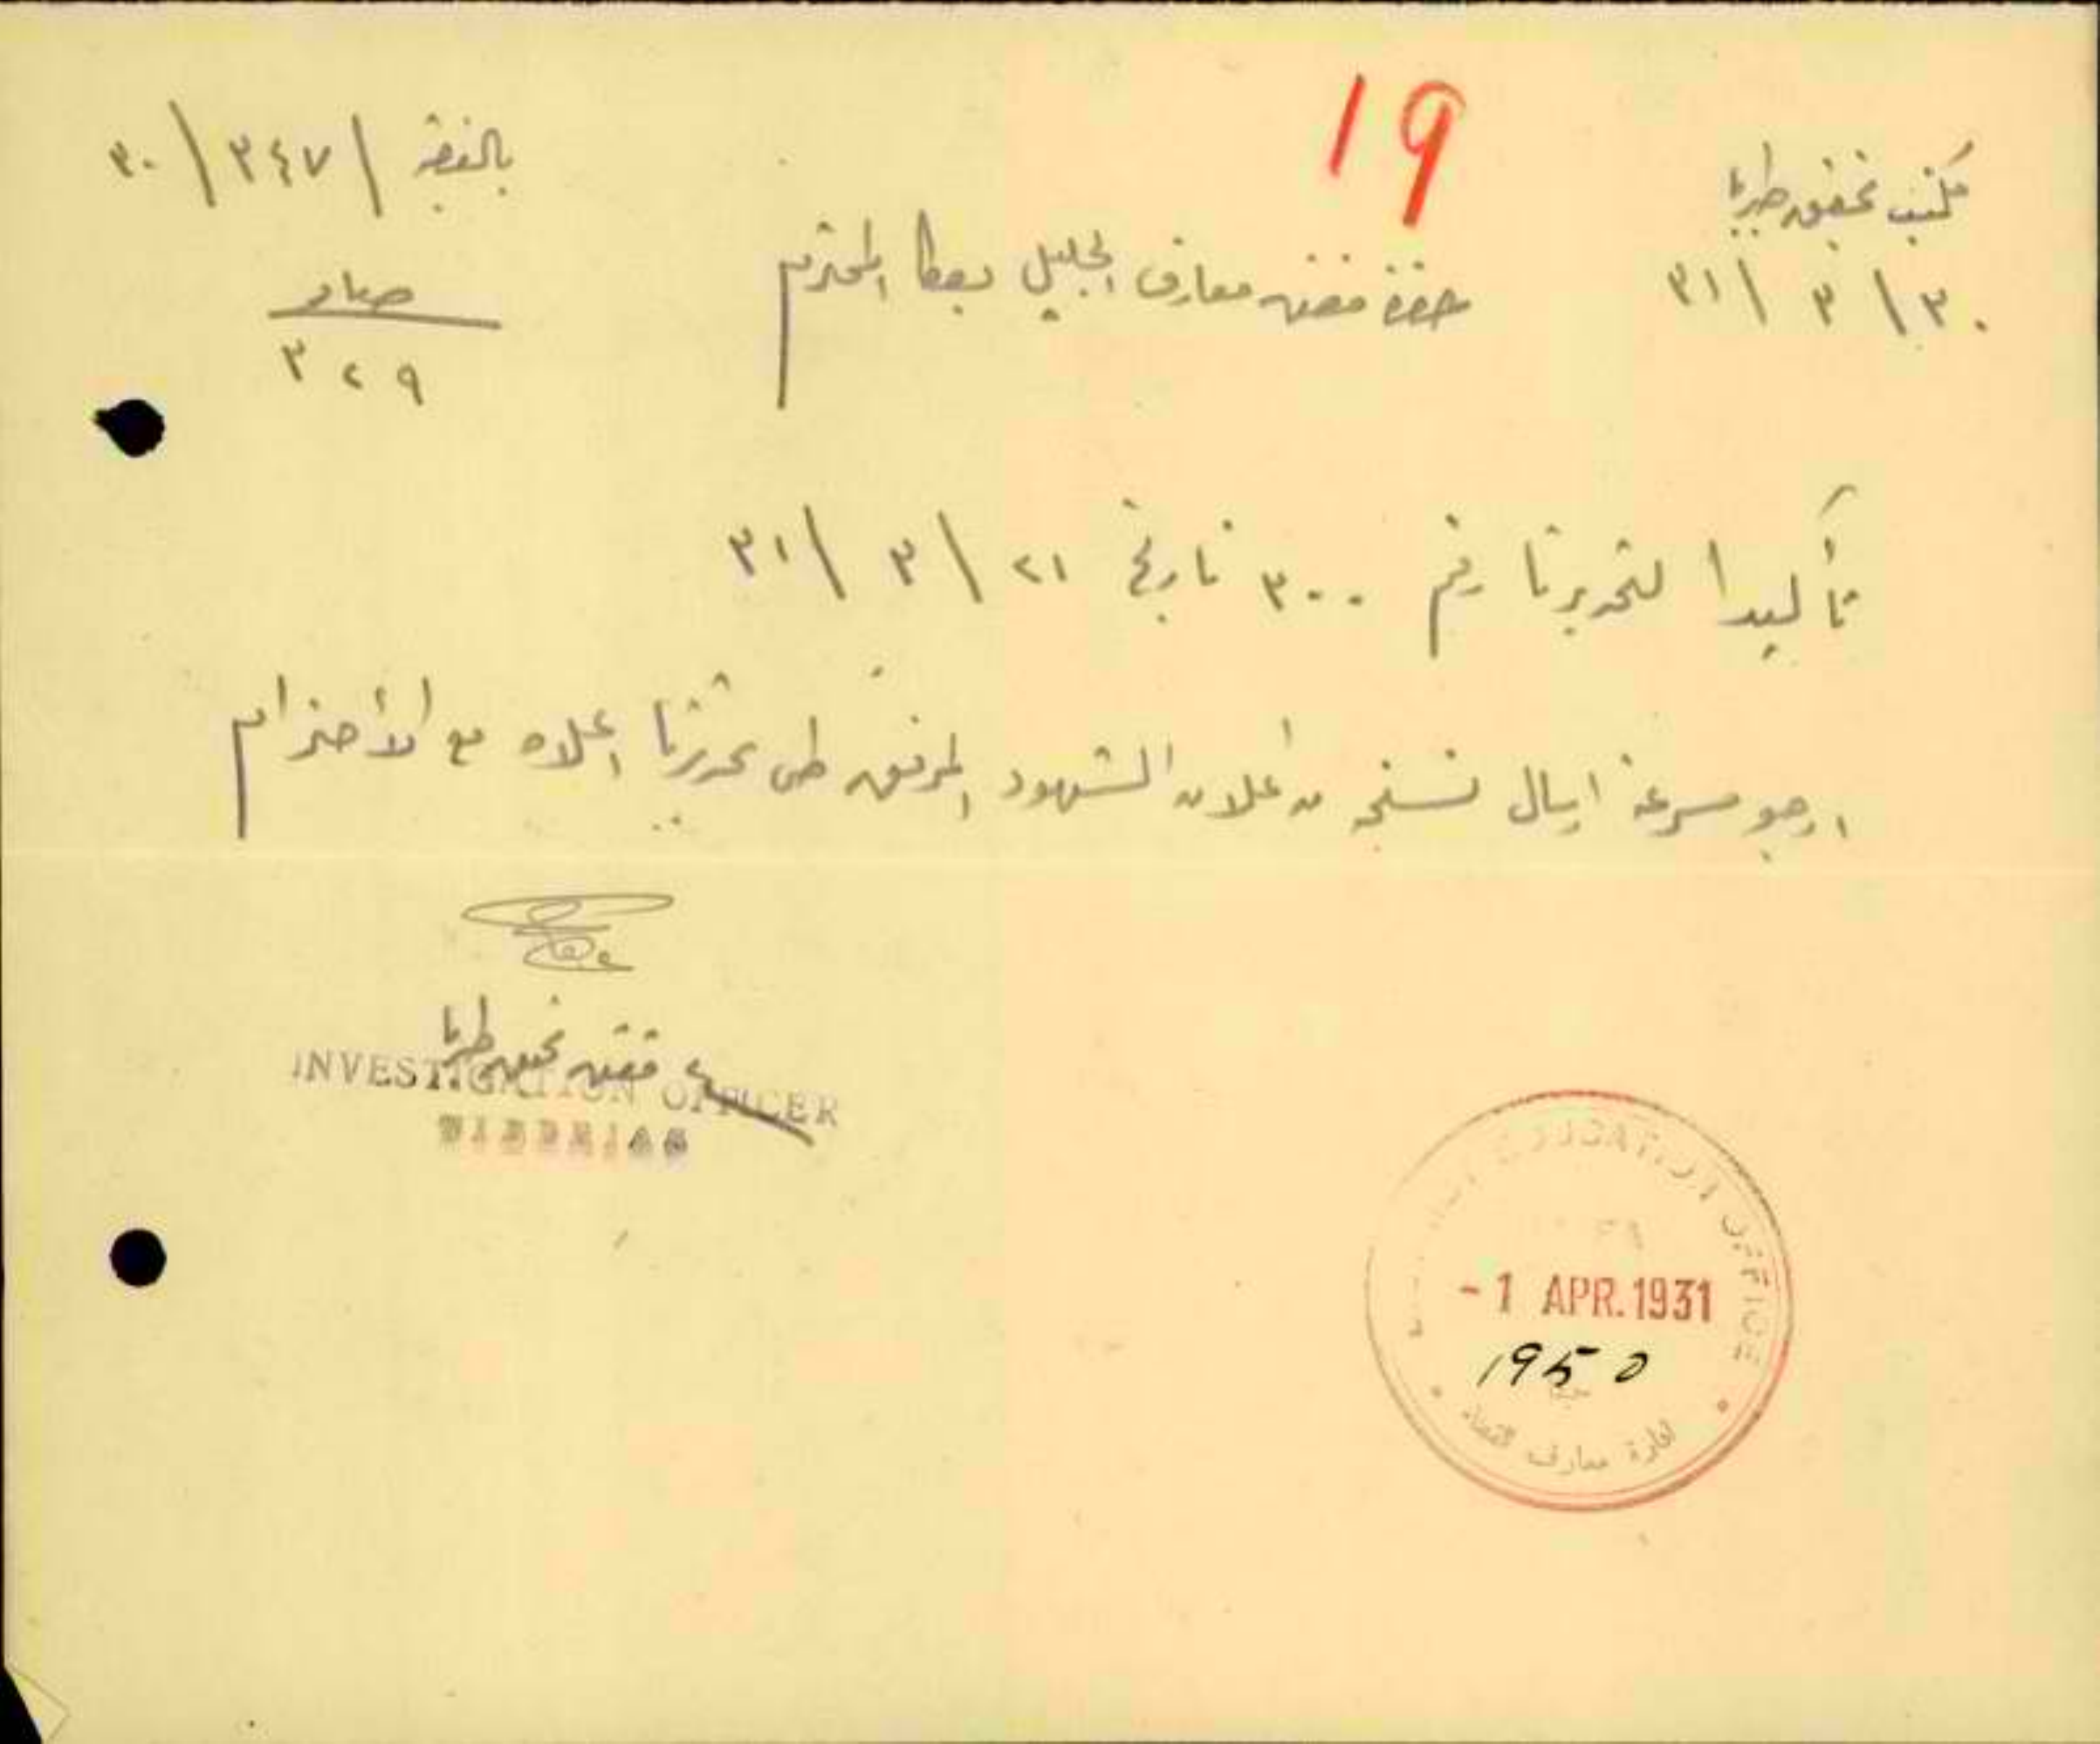 19
مكتب تحقيق طبريا
٣٠ / ٣ / ٣١
بالقضية / ٣٤٧ / ٣٠
صادر
٣٢٩
حضرة مفتش معارف الجليل بعكا المحترم
تأكيدا لتحريرنا رقم ٣٠٠ تاريخ ٢١ / ٣ / ٣١
ارجو سرعة ارسال نسخه من اعلان الشهود المرفق طى تحريرنا اعلاه مع الأحترام
مفتش تحقيق طبريا
INVESTIGATION OFFICER
TIBERIAS
EDUCATION OFFICE
-1 APR. 1931
1950
ادارة معارف القضاء